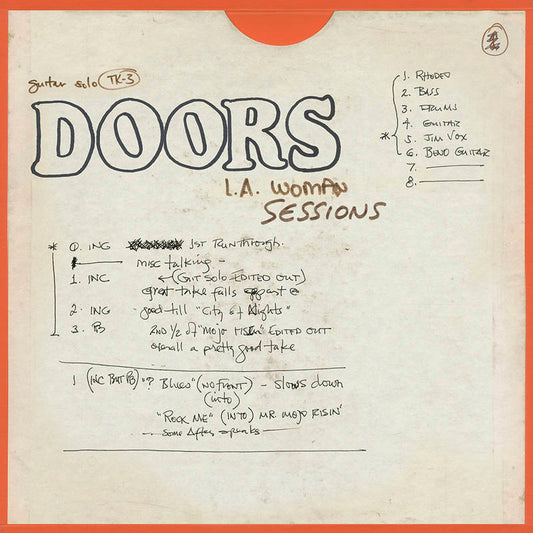 guitar solo TK-3
DOORS
L.A. WOMAN
SESSIONS
1. RHODES
2. BASS
3. DRUMS
4. GUITAR
* 5. JIM VOX
6. BEND GUITAR
7.
8.
* 0. INC 1ST RUNTHROUGH.
MISC talking –
1. INC ←(GIT SOLO EDITED OUT)
great take falls apart @
2. INC good till "City of Nights"
3. PB 2ND 1/2 of "Mojo RISIN" EDITED OUT
overall a pretty good take
1 (INC BUT PB) "? BLUES" (NO FRONT) – SLOWS down
(into)
"ROCK ME" (INTO) MR. MOJO RISIN'
— some After —